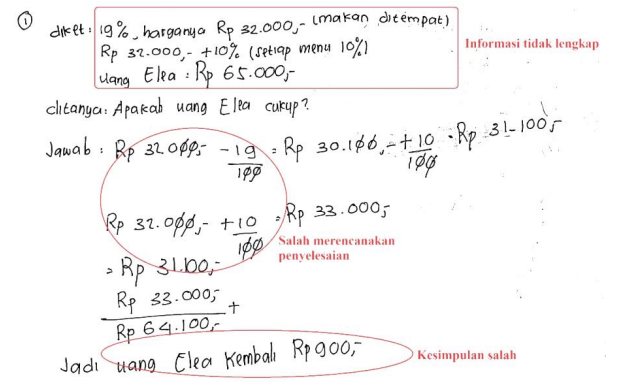 ① diket : 19%, harganya Rp 32.000,- (makan ditempat)
Rp 32.000,- +10% (setiap menu 10%)
uang Elea : Rp 65.000,-
Informasi tidak lengkap
ditanya : Apakah uang Elea cukup?
Jawab : Rp 32.000,- - 19/100 = Rp 30.100,- + 10/100 = Rp 31.100,-
Rp 32.000,- + 10/100 = Rp 33.000,-
Salah merencanakan
penyelesaian
= Rp 31.100,-
Rp 33.000,- +
Rp 64.100,-
Jadi uang Elea Kembali Rp 900,-
Kesimpulan salah